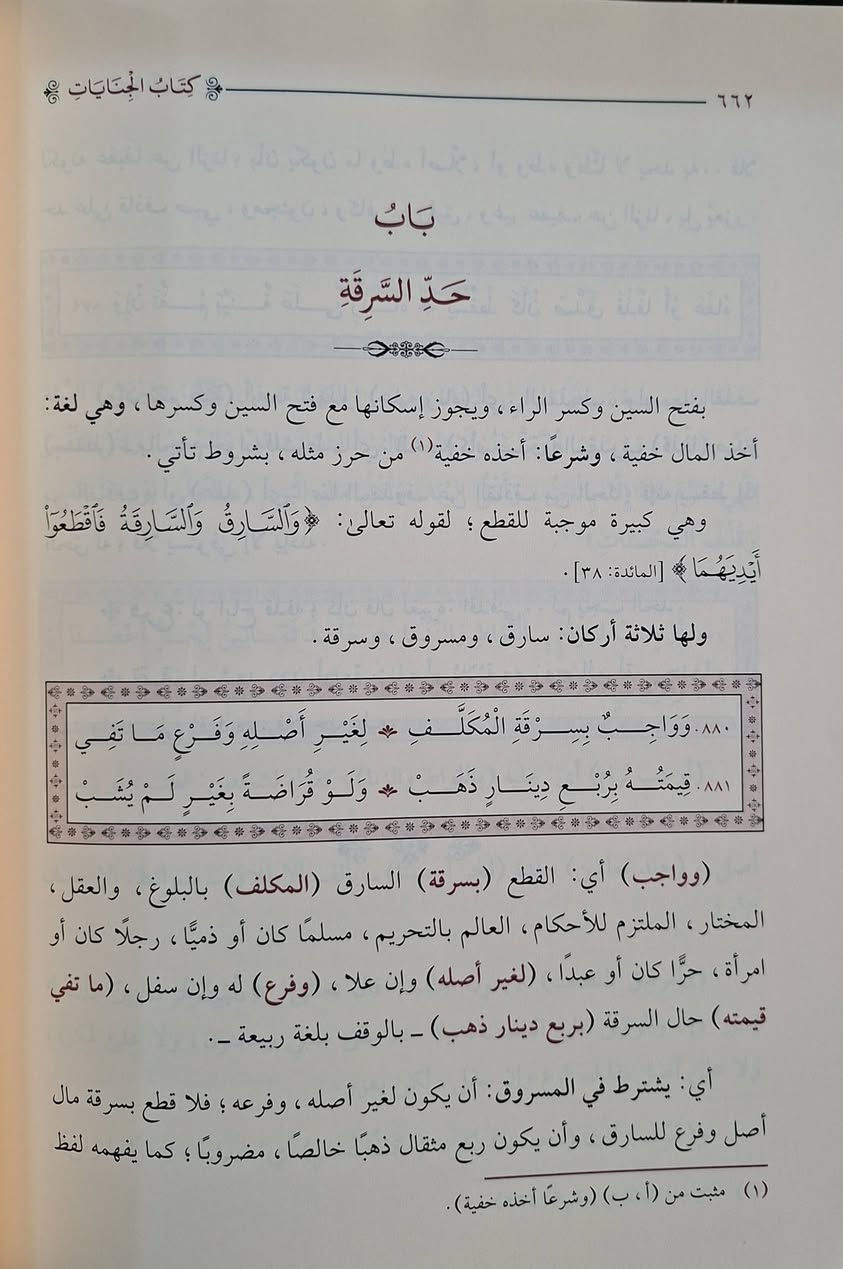 ٦٦٢ كِتَابُ الْجِنَايَاتِ
بَابُ
حَدِّ السَّرِقَةِ
بفتح السين وكسر الراء، ويجوز إسكانها مع فتح السين وكسرها، وهي لغة:
أخذ المال خفية، وشرعًا: أخذه خفية(١) من حرز مثله، بشروط تأتي.
وهي كبيرة موجبة للقطع؛ لقوله تعالىٰ: ﴿وَٱلسَّارِقُ وَٱلسَّارِقَةُ فَٱقْطَعُوٓاْ
أَيْدِيَهُمَا﴾ [المائدة: ٣٨].
ولها ثلاثة أركان: سارق، ومسروق، وسرقة.
٨٨٠. وَوَاجِبٌ بِسِرْقَةِ الْمُكَلَّفِ لِغَيْرِ أَصْلِهِ وَفَرْعٍ مَا تَفِي
٨٨١. قِيمَتُهُ بِرُبْعِ دِينَارٍ ذَهَبْ وَلَوْ قُرَاضَةً بِغَيْرٍ لَمْ يُشَبْ
(وواجب) أي: القطع (بسرقة) السارق (المكلف) بالبلوغ، والعقل،
المختار، الملتزم للأحكام، العالم بالتحريم، مسلمًا كان أو ذميًّا، رجلًا كان أو
امرأة، حرًّا كان أو عبدًا، (لغير أصله) وإن علا، (وفرع) له وإن سفل، (ما تفي
قيمته) حال السرقة (بربع دينار ذهب) ـ بالوقف بلغة ربيعة ـ.
أي: يشترط في المسروق: أن يكون لغير أصله، وفرعه؛ فلا قطع بسرقة مال
أصل وفرع للسارق، وأن يكون ربع مثقال ذهبًا خالصًا، مضروبًا؛ كما يفهمه لفظ
(١) مثبت من (أ، ب) (وشرعًا أخذه خفية).